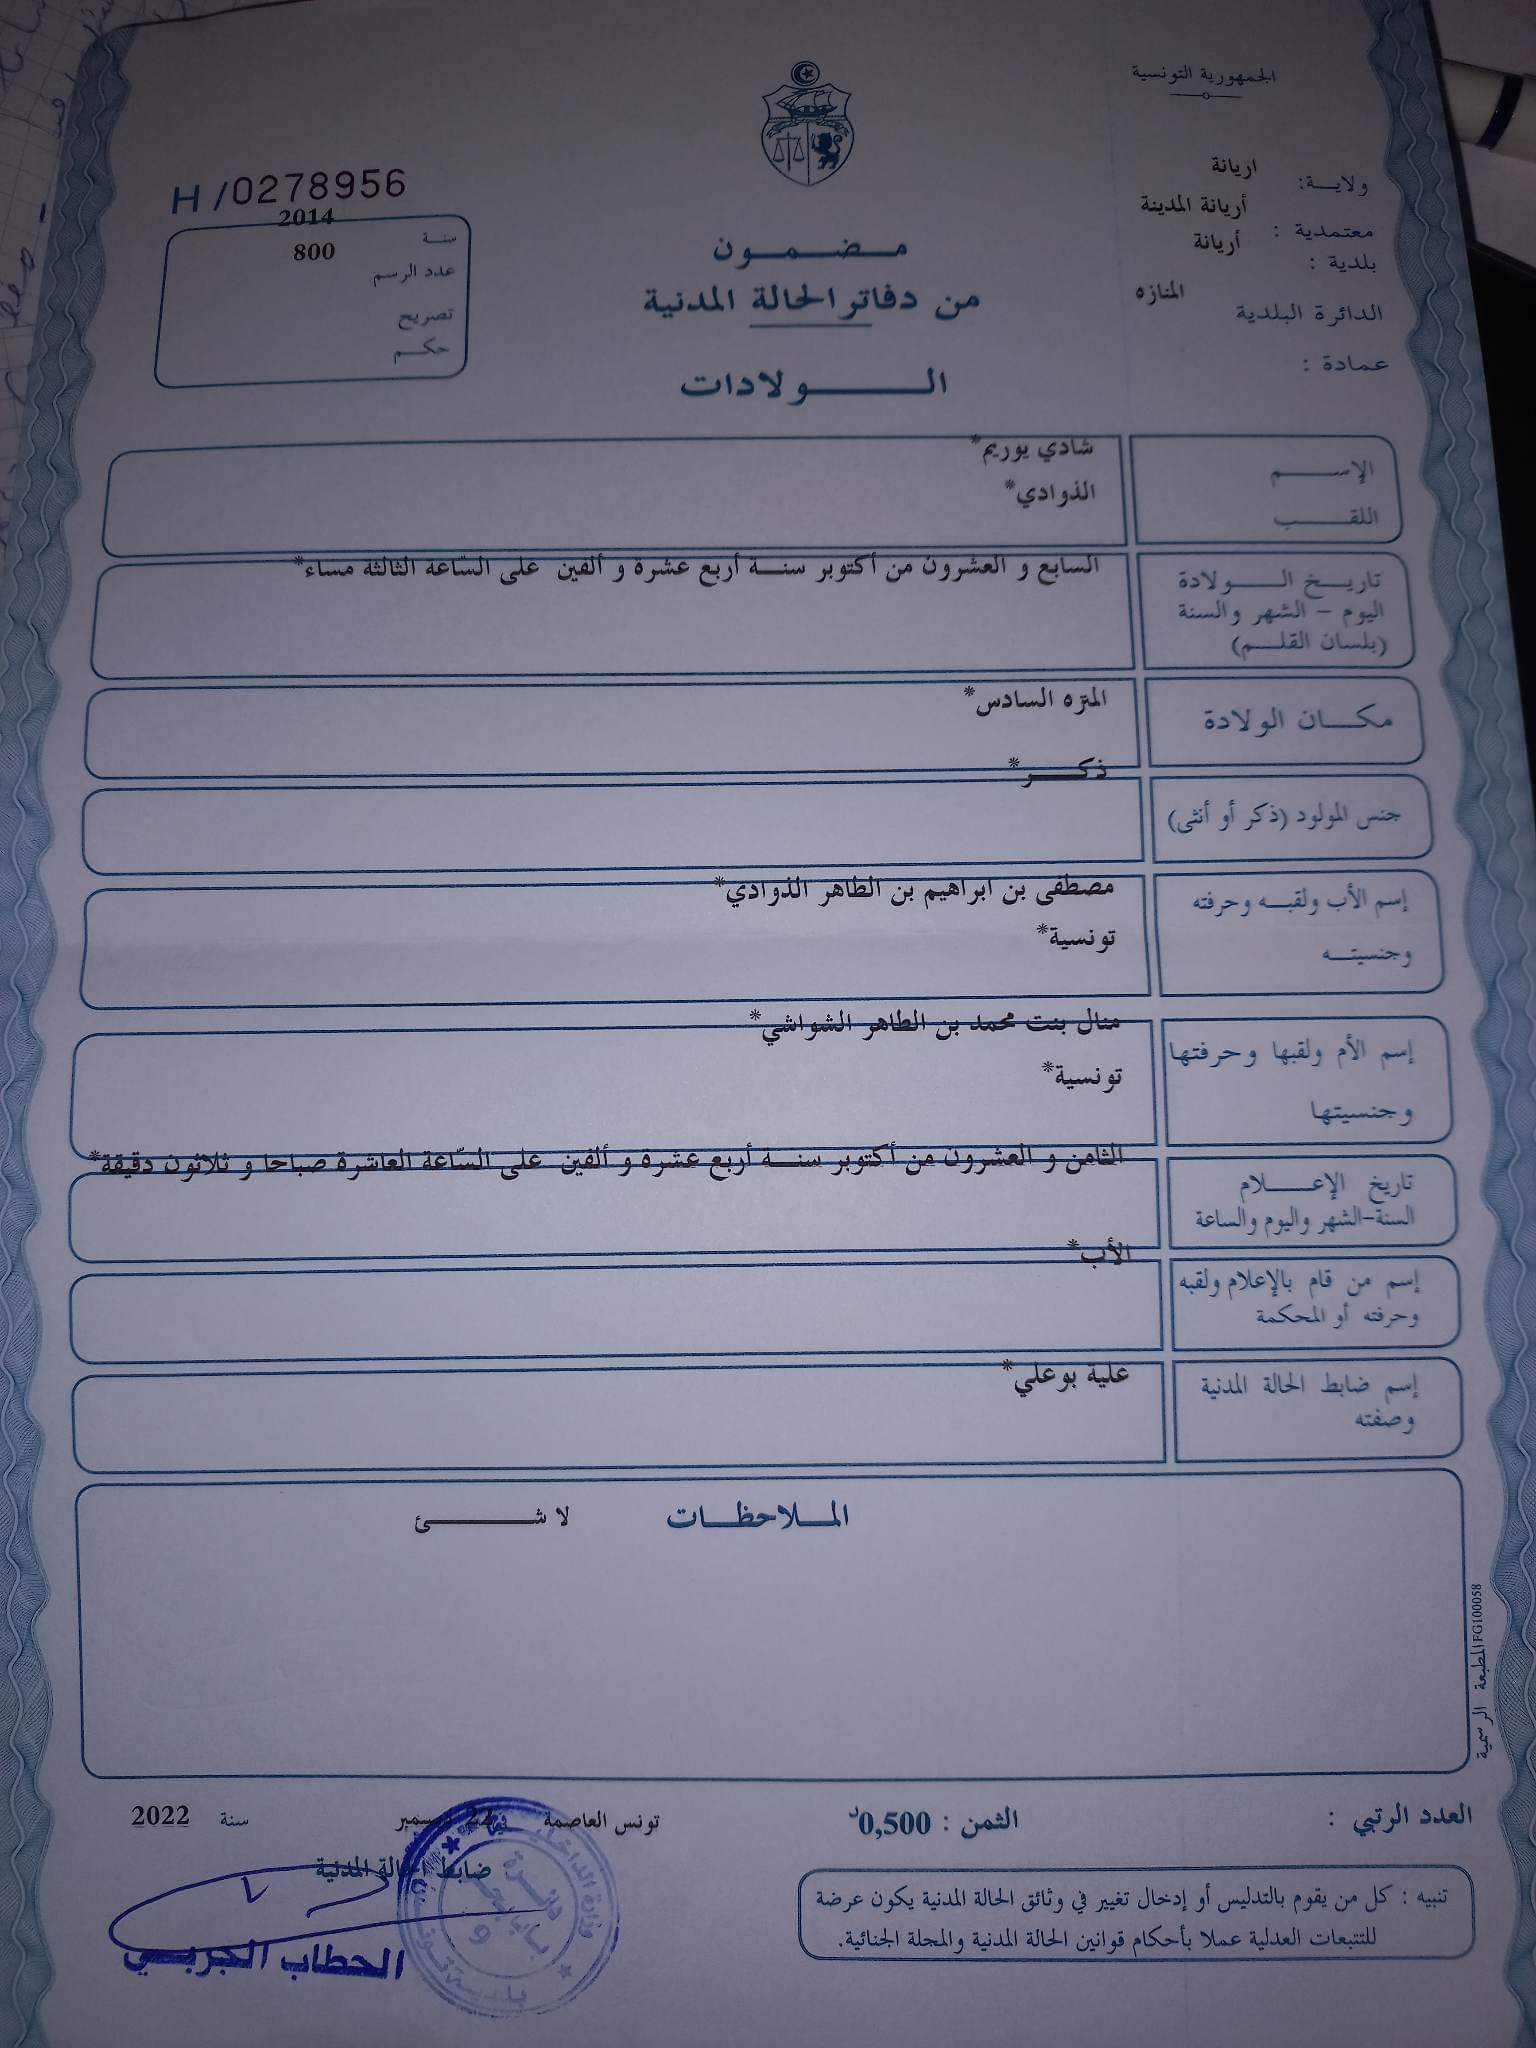 الجمهورية التونسية
ولاية: اريانة
معتمدية : أريانة المدينة
بلدية : أريانة
الدائرة البلدية المنازه
عمادة :
H/0278956
سنة 2014
عدد الرسم 800
تصريح
حكم
مضمون
من دفاتر الحالة المدنية
الولادات
الإسم شادي يوريم*
اللقب الذوادي*
تاريخ الولادة
اليوم - الشهر والسنة
(بلسان القلم)
السابع و العشرون من أكتوبر سنة أربع عشرة و ألفين على السّاعة الثالثة مساء*
مكان الولادة المتزه السادس*
جنس المولود (ذكر أو أنثى) ذكر*
إسم الأب ولقبه وحرفته
وجنسيته
مصطفى بن ابراهيم بن الطاهر الذوادي*
تونسية*
إسم الأم ولقبها وحرفتها
وجنسيتها
منال بنت محمد بن الطاهر الشواشي*
تونسية*
تاريخ الإعلام
السنة-الشهر واليوم والساعة
الثامن و العشرون من أكتوبر سنة أربع عشرة و ألفين على السّاعة العاشرة صباحا و ثلاثون دقيقة*
إسم من قام بالإعلام ولقبه
وحرفته أو المحكمة
الأب*
إسم ضابط الحالة المدنية
وصفته
علية بوعلي*
الملاحظات لا شئ
المطبعة الرسمية FG100058
العدد الرتبي :
الثمن : 0,500د
تونس العاصمة في 22 ديسمبر سنة 2022
ضابط الحالة المدنية
الحطاب الجربي
تنبيه : كل من يقوم بالتدليس أو إدخال تغيير في وثائق الحالة المدنية يكون عرضة
للتتبعات العدلية عملا بأحكام قوانين الحالة المدنية والمجلة الجنائية.